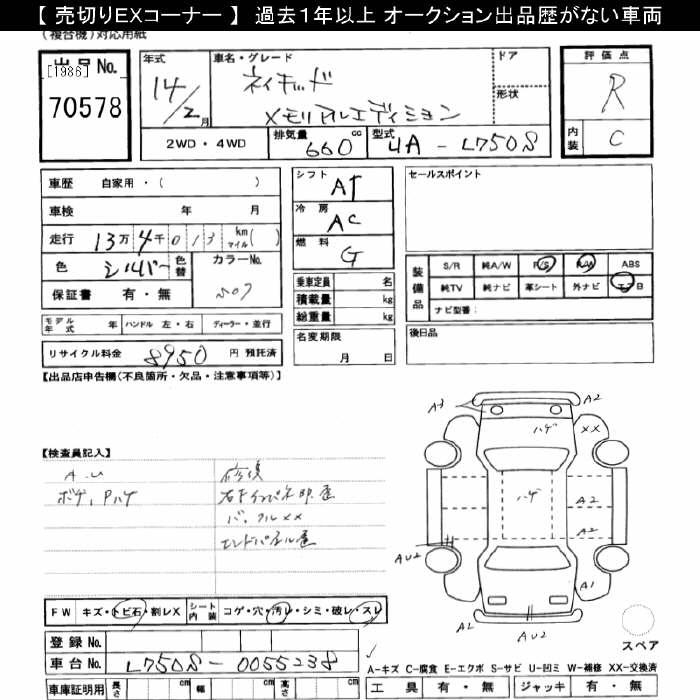 【 売切りEXコーナー 】 過去１年以上 オークション出品歴がない車両
(複合機)対応用紙
出品No.
[1986]
70578
年式
14/2月
車名・グレード
ネイキッド
メモリアルエディション
ドア
形状
評価点
R
内装
C
2WD・4WD
排気量 660 cc
型式 UA-L750S
車歴 自家用・( )
車検 年 月
走行 13万4千013 km マイル( )
色 シルバー
色替
カラーNo. S07
保証書 有・無
モデル年式 年 ハンドル 左・右 ディーラー・並行
リサイクル料金 8950 円 預託済
シフト AT
冷房 AC
燃料 G
乗車定員 名
積載量 kg
総重量 kg
名変期限
月 日
セールスポイント
装備品
S/R 純A/W P/S P/W ABS
純TV 純ナビ 革シート 外ナビ エアB
ナビ型番:
後日品
【出品店申告欄(不良箇所・欠品・注意事項等)】
【検査員記入】
A.U
ボデ,Pハゲ
修復
バックルXX
A3
A2
ハゲ
XX
ハゲ
A2
A2
AU2
A1
A2
AU2
FW キズ・トビ石・割レX
シート内装 コゲ・穴・汚レ・シミ・破レ・スレ
スペア
登録No.
車台No. L750S-0055238
A-キズ C-腐食 E-エクボ S-サビ U-凹ミ W-補修 XX-交換済
車庫証明用 長さ cm 幅 cm 高さ cm
工具 有・無 ジャッキ 有・無